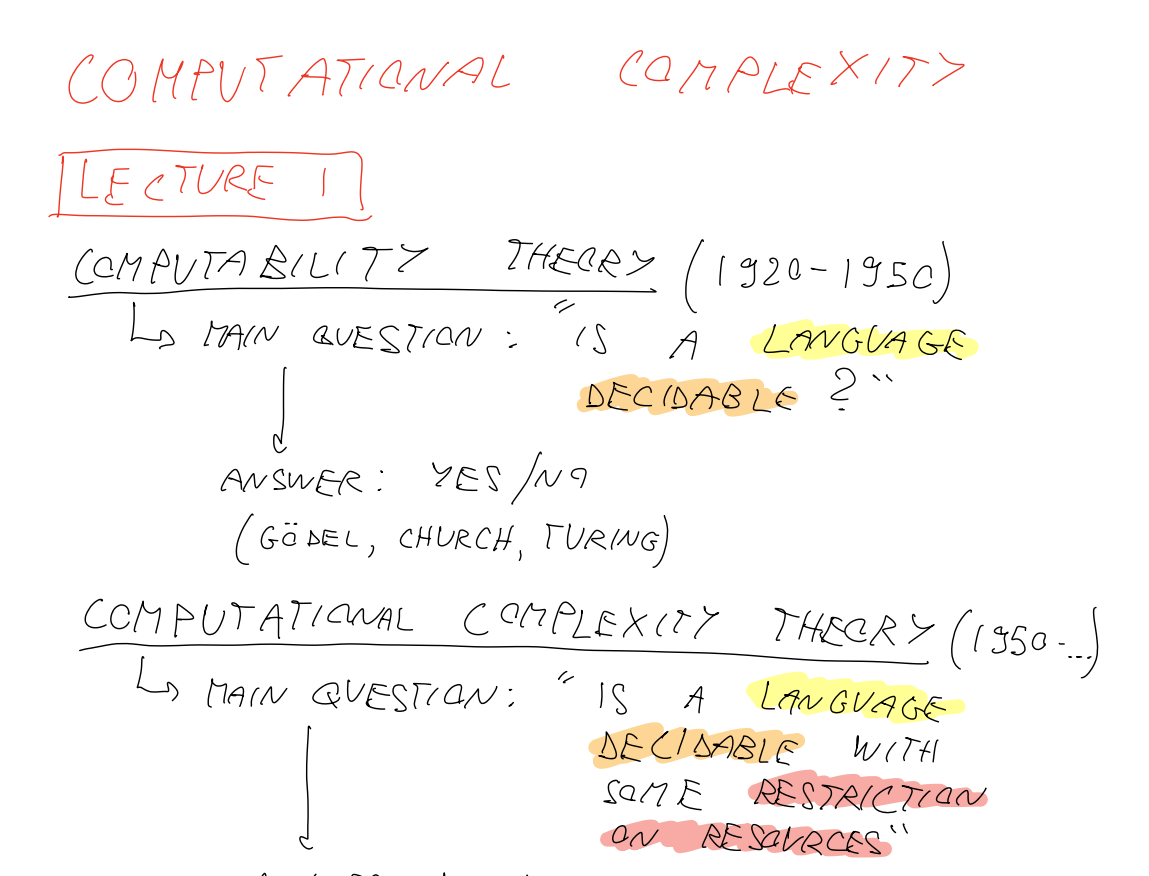 COMPUTATIONAL COMPLEXITY
LECTURE 1
COMPUTABILITY THEORY (1920-1950)
↳ MAIN QUESTION: "IS A LANGUAGE
DECIDABLE ?"
ANSWER: YES/NO
(GÖDEL, CHURCH, TURING)
COMPUTATIONAL COMPLEXITY THEORY (1950-...)
↳ MAIN QUESTION: "IS A LANGUAGE
DECIDABLE WITH
SOME RESTRICTION
ON RESOURCES"